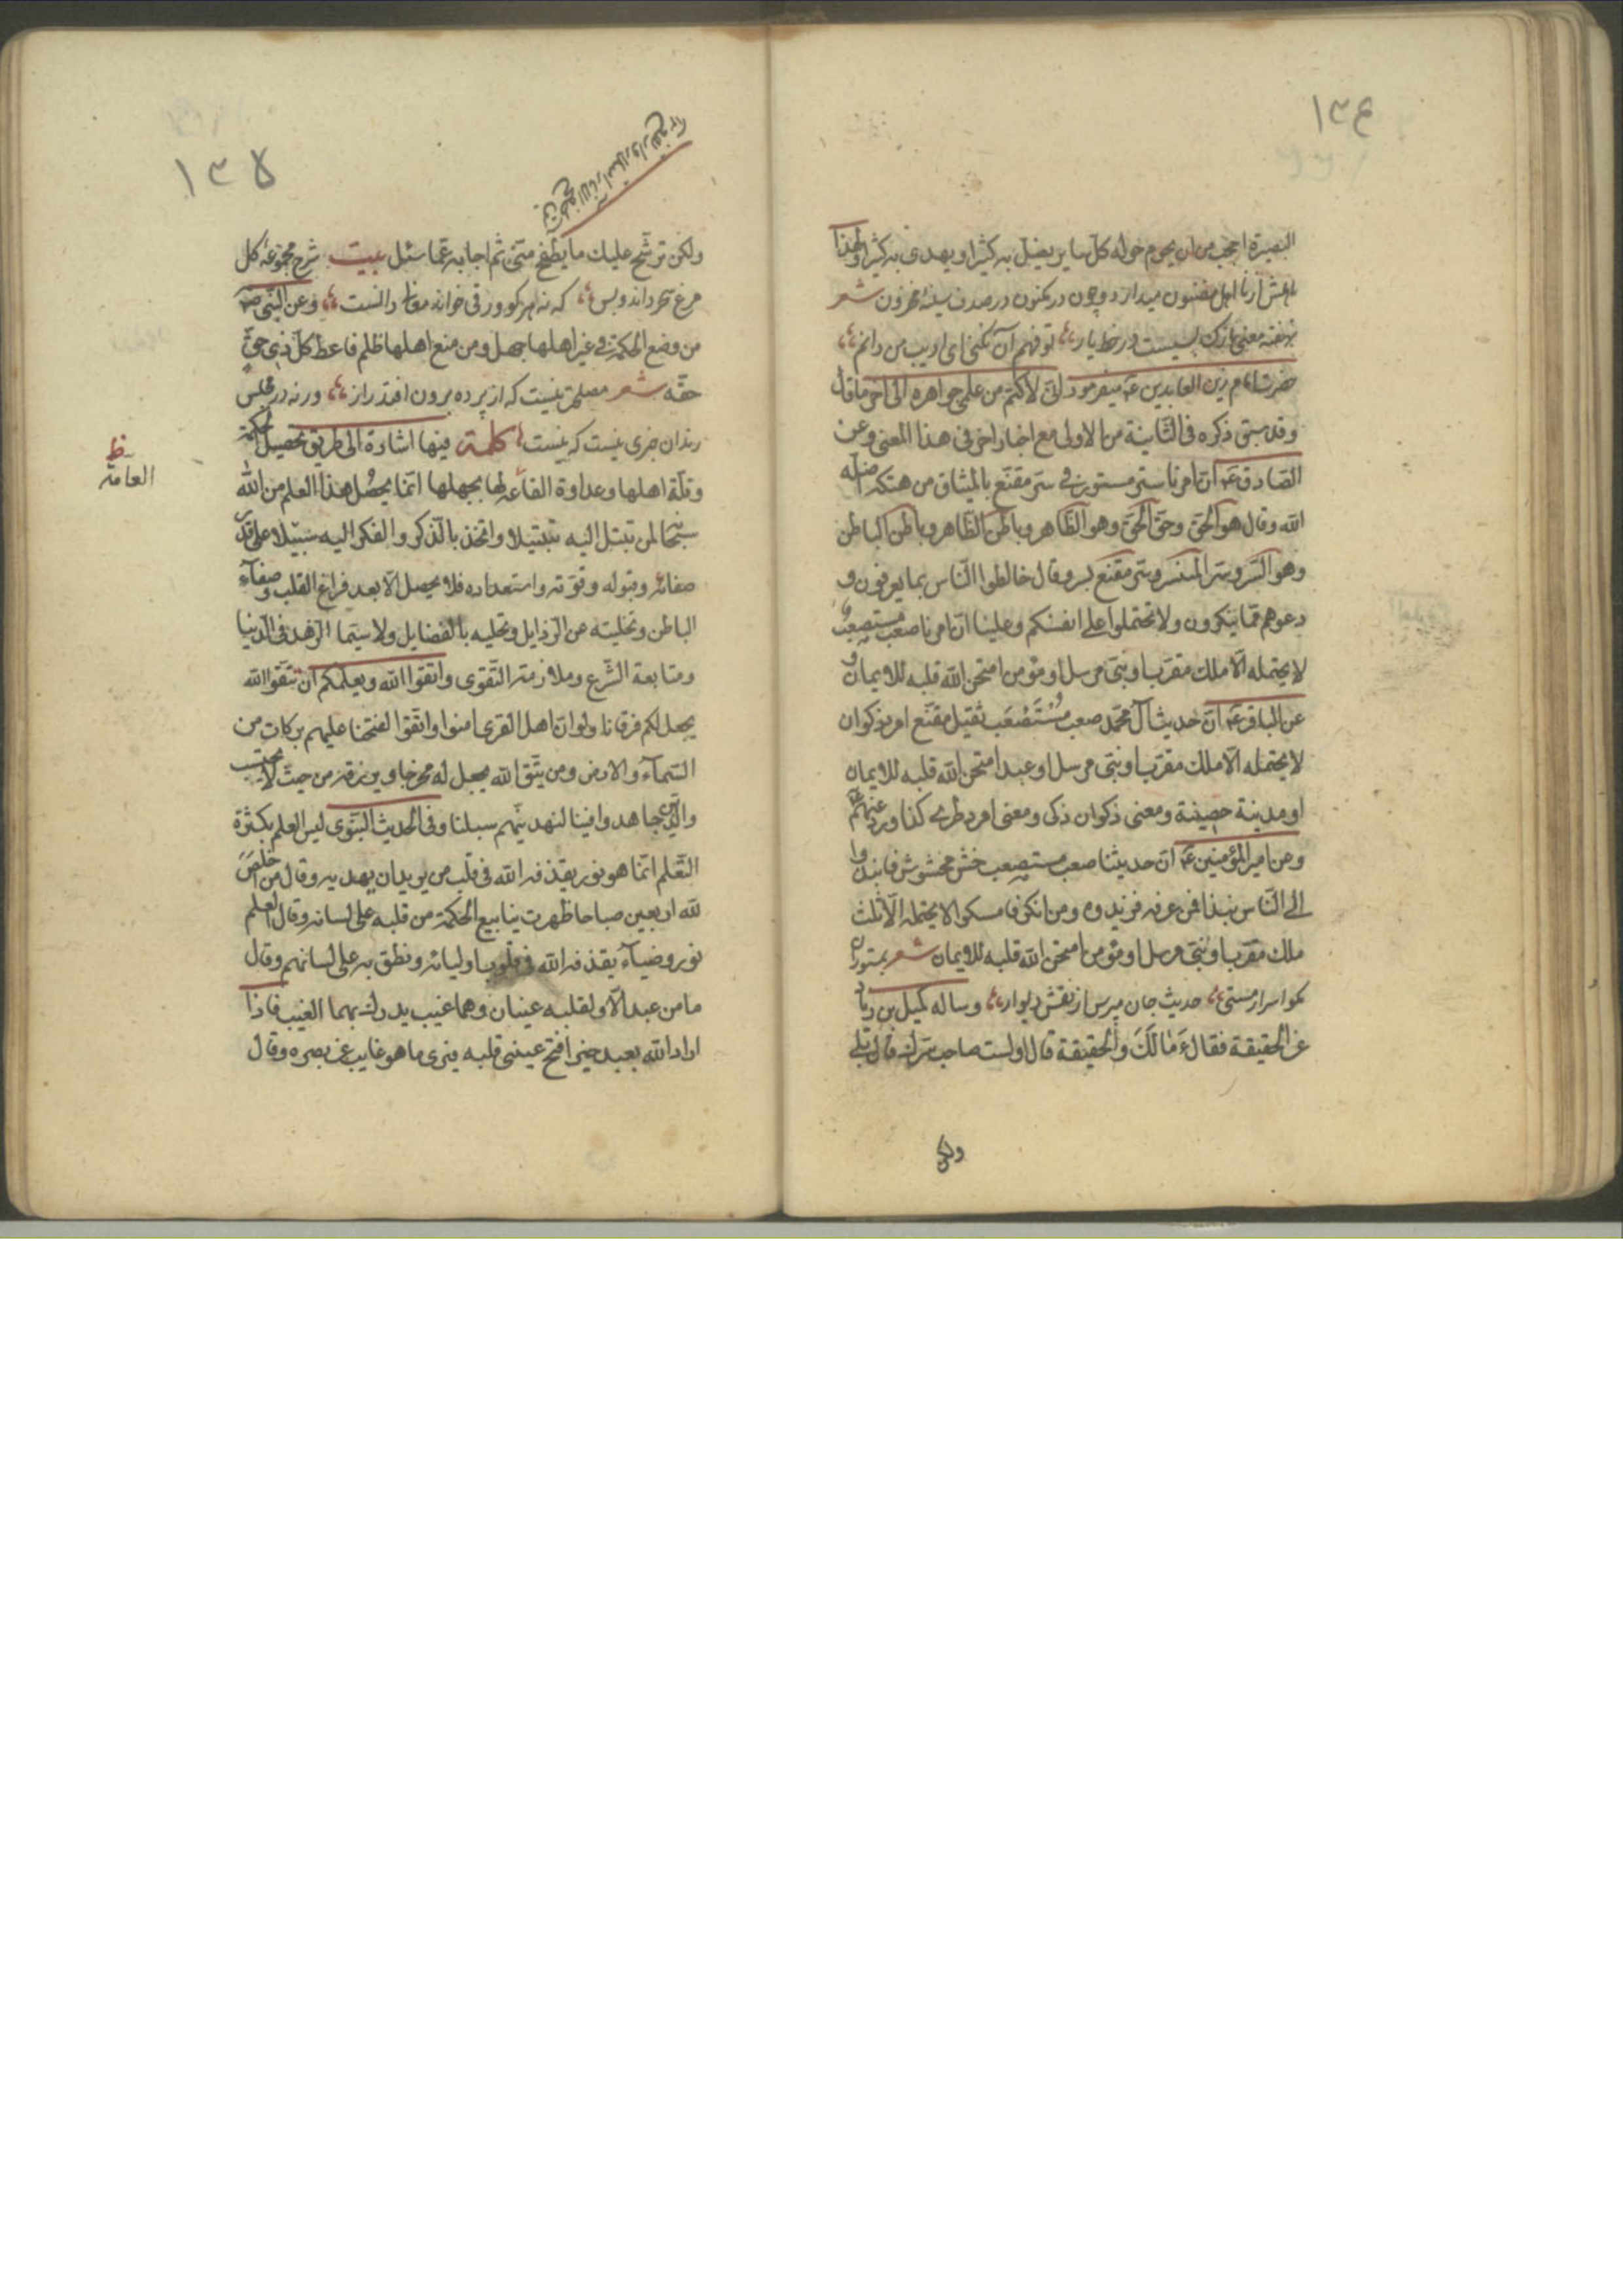 ١٣٤
البصيرة اعجب من ان يحوم حوله كل ساير يضل به كثيرا و يهدى به كثيرا ولهذا
اهلش از نا اهل مضنون ميدارد و چون در مكنون در صدف سينه مخزون شعر
نهفته معنى نازك بسيست در خط يار تو فهم آن نكنى اى اديب من دانم
حضرت امام زين العابدين ع ميفرمود انى لاكتم من علمى جواهره الى اخر ما قال
و قد سبق ذكره فى الثانية من الاولى مع اخبار اخر فى هذا المعنى وعن
الصادق ع ان امرنا ستر مستور فى ستر مقنع بالميثاق من هتكه اضله
الله وقال هو الحق وحق الحق وهو الظاهر وباطن الظاهر وباطن الباطن
وهو السر وستر المستسر وستر مقنع بسر وقال خالطوا الناس بما يعرفون و
دعوهم مما ينكرون ولا تحتملوا على انفسكم وعلينا ان امرنا صعب مستصعب
لا يحتمله الا ملك مقرب او نبى مرسل او مؤمن امتحن الله قلبه للايمان و
عن الباقر ع ان حديث آل محمد صعب مستصعب ثقيل مقنع امرد ذكوان
لا يحتمله الا ملك مقرب او نبى مرسل او عبد امتحن الله قلبه للايمان
او مدينة حصينة ومعنى ذكوان ذكى ومعنى امرد طرى كذا ورد عنهم ع
وعن امير المؤمنين ع ان حديثنا صعب مستصعب خشن مخشوش فانبذوا
الى الناس نبذا فمن عرفه فزيدوه ومن انكر فامسكوا لا يحتمله الا ثلث
ملك مقرب او نبى مرسل او مؤمن امتحن الله قلبه للايمان شعر بمستوران
مگو اسرار مستى حديث جان مپرس از نقش ديوار وساله كميل بن زياد
عن الحقيقة فقال ع مالك والحقيقة قال اولست صاحب سرك قال بلى
ولكن
١٣٥
ولكن ترشح عليك ما يطفح منى ثم اجابه عما سئل بيت شرح مجموعۀ گل
مرغ سحر داند وبس كه نه هر كو ورقى خواند معانى دانست وعن النبى ص
من وضع الحكمة فى غير اهلها جهل ومن منع اهلها ظلم فاعط كل ذى حق
حقه شعر مصلحت نيست كه از پرده برون افتد راز ورنه در مجلس
رندان خبرى نيست كه نيست كلمة فيها اشارة الى طريق تحصيل الحكمة
وقلة اهلها وعداوة القاعد لها بجهلها انما يحصل هذا العلم من الله
سبحانه لمن تبتل اليه تبتيلا واتخذ بالذكر والفكر اليه سبيلا على قدر
صفائه وقبوله وقوته واستعداده فلا يحصل الا بعد فراغ القلب وصفاء
الباطن وتخليته عن الرذايل وتحليه بالفضايل ولا سيما الزهد فى الدنيا
ومتابعة الشرع وملازمة التقوى واتقوا الله ويعلمكم ان تتقوا الله
يجعل لكم فرقانا ولو ان اهل القرى امنوا واتقوا لفتحنا عليهم بركات من
السماء والارض ومن يتق الله يجعل له مخرجا ويرزقه من حيث لا يحتسب
والذين جاهدوا فينا لنهدينهم سبلنا وفى الحديث النبوى ليس العلم بكثرة
التعلم انما هو نور يقذفه الله فى قلب من يريد ان يهديه وقال من اخلص
لله اربعين صباحا ظهرت ينابيع الحكمة من قلبه على لسانه وقال العلم
نور وضياء يقذفه الله فى قلوب اوليائه ونطق به على لسانهم وقال
ما من عبد الا ولقلبه عينان وهما غيب يدرك بهما الغيب فاذا
اراد الله بعبد خيرا فتح عينى قلبه فيرى ما هو غايب عن بصره وقال
ظ
العامة